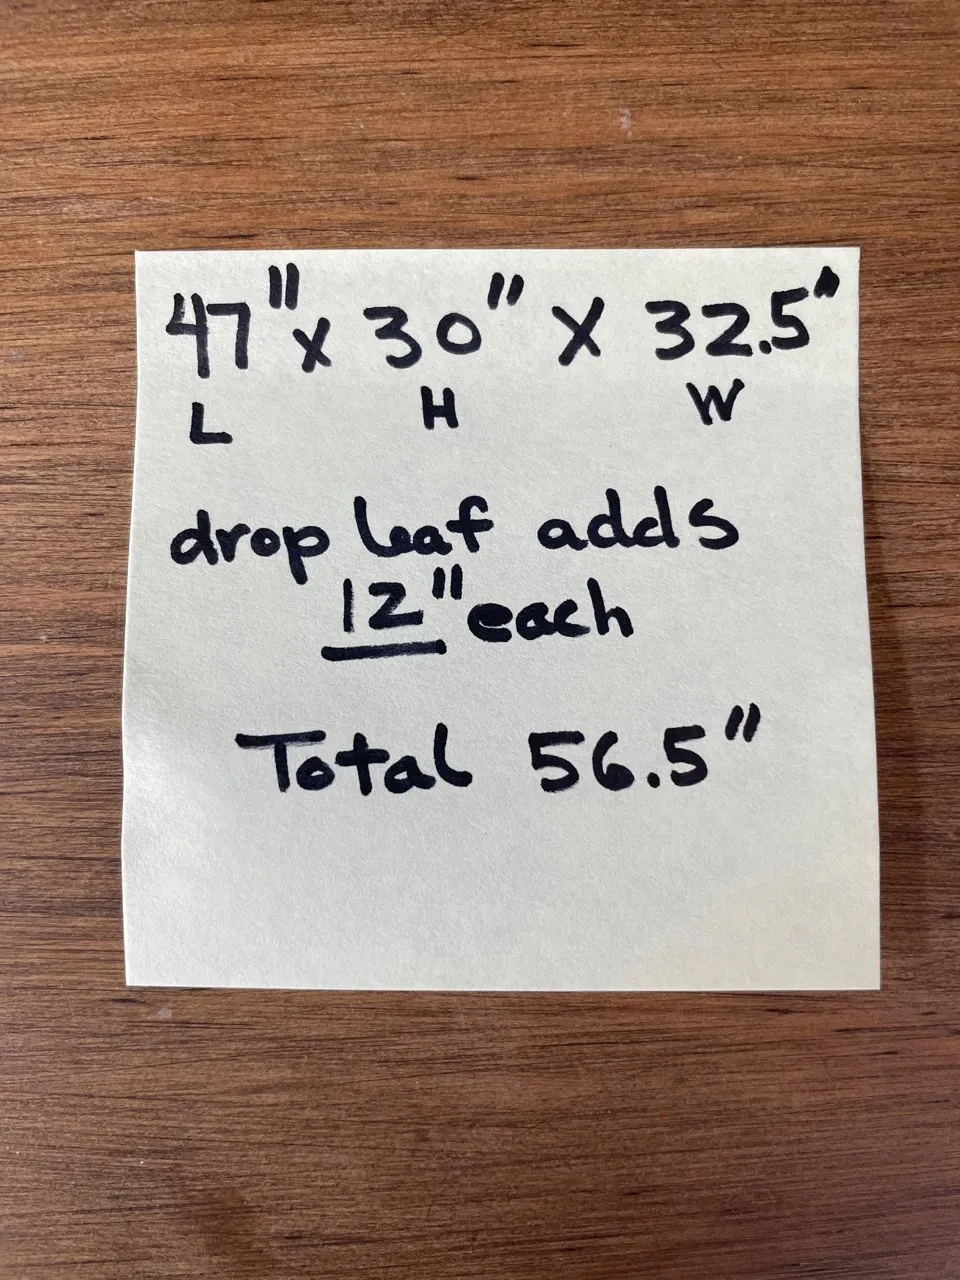 47" x 30" X 32.5"
L H W
drop leaf adds
12" each
Total 56.5"